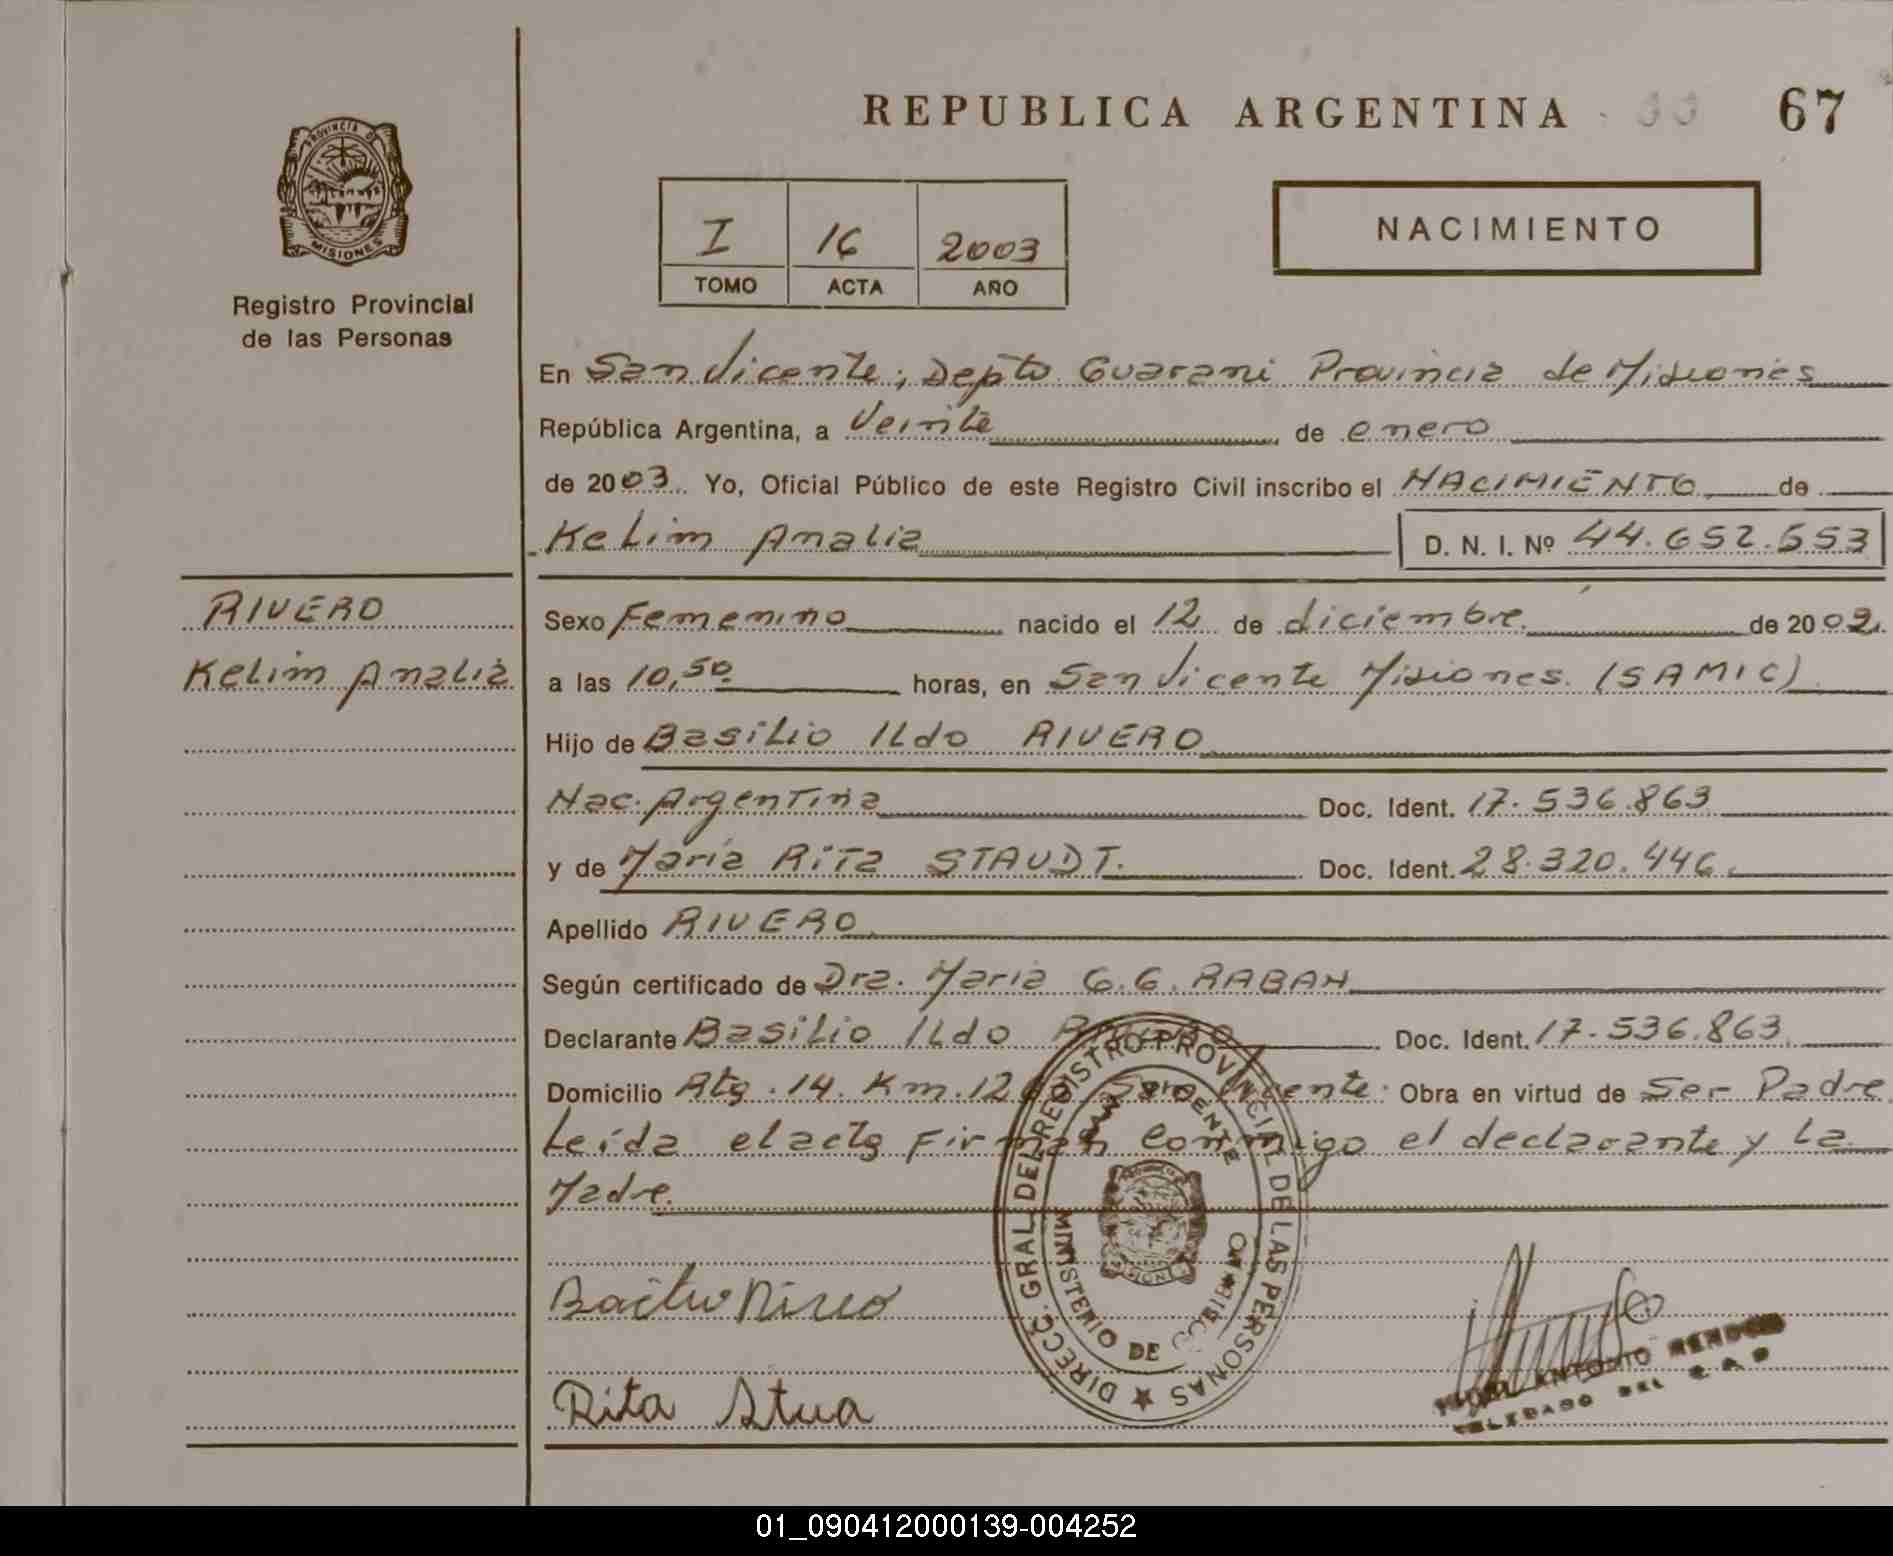 REPUBLICA ARGENTINA 67
PROVINCIA DE MISIONES
Registro Provincial
de las Personas
NACIMIENTO
I 16 2003
TOMO ACTA AÑO
En San Vicente, Depto Guarani Provincia de Misiones
República Argentina, a Veinte de enero
de 2003. Yo, Oficial Público de este Registro Civil inscribo el NACIMIENTO de
Kelim Analia D. N. I. Nº 44.652.553
RIVERO
Kelim Analia
Sexo Femenino nacido el 12 de diciembre de 2002.
a las 10,50 horas, en San Vicente Misiones. (SAMIC)
Hijo de Basilio Ildo RIVERO
Nac. Argentina Doc. Ident. 17.536.863
y de Maria Rita STAUDT. Doc. Ident. 28.320.446.
Apellido RIVERO
Según certificado de Dra. Maria G.G. RABAN
Declarante Basilio Ildo RIVERO Doc. Ident. 17.536.863.
Domicilio Rta. 14. Km. 12 San Vicente. Obra en virtud de Ser Padre
Leída el acta Firman Conmigo el declarante y La
Madre.
DIRECC. GRAL. DEL REGISTRO PROVINCIAL DE LAS PERSONAS
MINISTERIO DE GOBIERNO
Rita Stua
ANTONIO
01_090412000139-004252